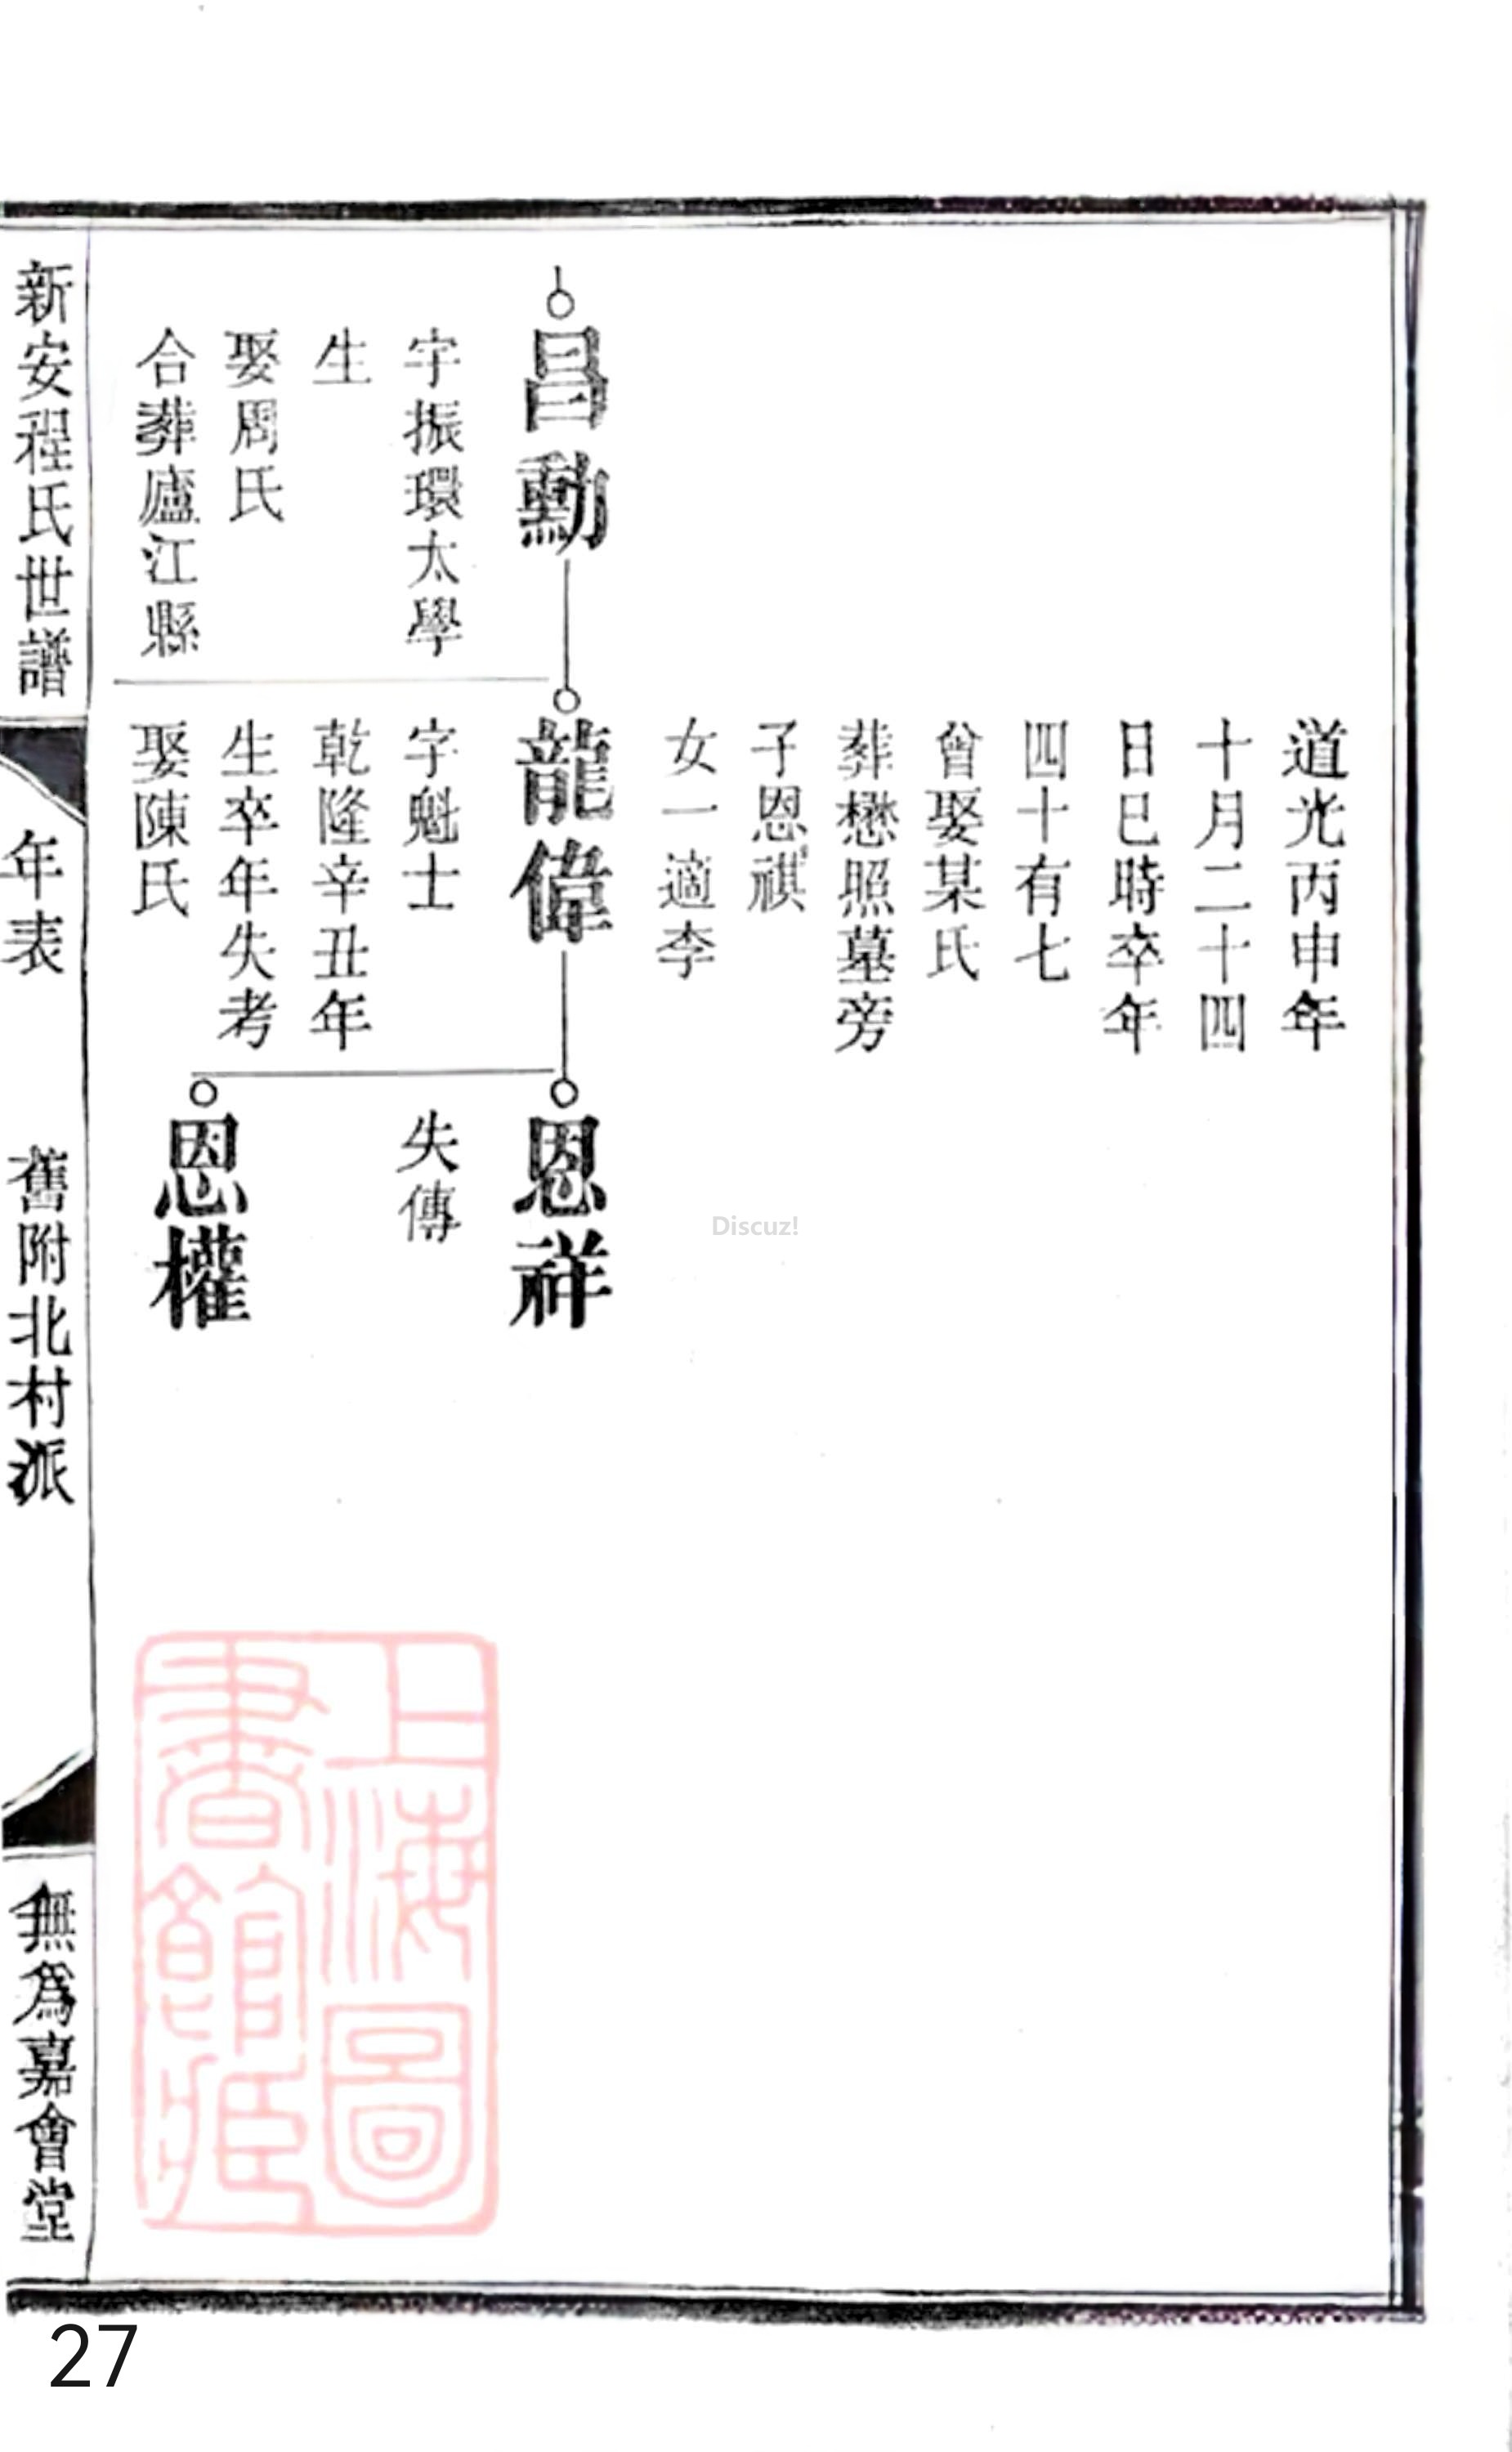 道光丙申年
十月二十四
日巳時卒年
四十有七
曾娶某氏
葬懋照墓旁
子恩祺
女一適李
昌勳
字振環太學
生
娶周氏
合葬廬江縣
龍偉
字魁士
乾隆辛丑年
生卒年失考
娶陳氏
恩祥
失傳
恩權
新安程氏世譜
年表
舊附北村派
無為嘉會堂
上海圖
書館藏
Discuz!
27